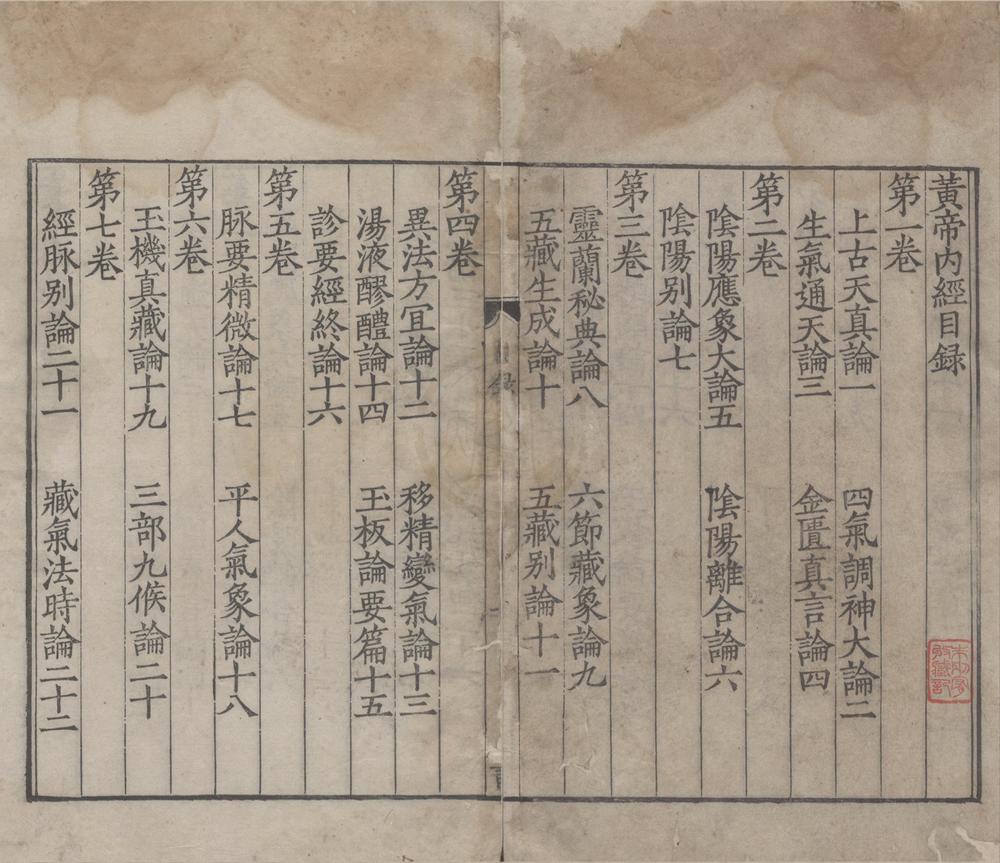 黃帝内經目録
第一卷
上古天真論一　四氣調神大論二
生氣通天論三　金匱真言論四
第二卷
陰陽應象大論五　陰陽離合論六
陰陽別論七
第三卷
靈蘭秘典論八　六節藏象論九
五藏生成論十　五藏別論十一
目録
第四卷
異法方宜論十二　移精變氣論十三
湯液醪醴論十四　玉板論要篇十五
診要經終論十六
第五卷
脉要精微論十七　平人氣象論十八
第六卷
玉機真藏論十九　三部九候論二十
第七卷
經脉別論二十一　藏氣法時論二十二